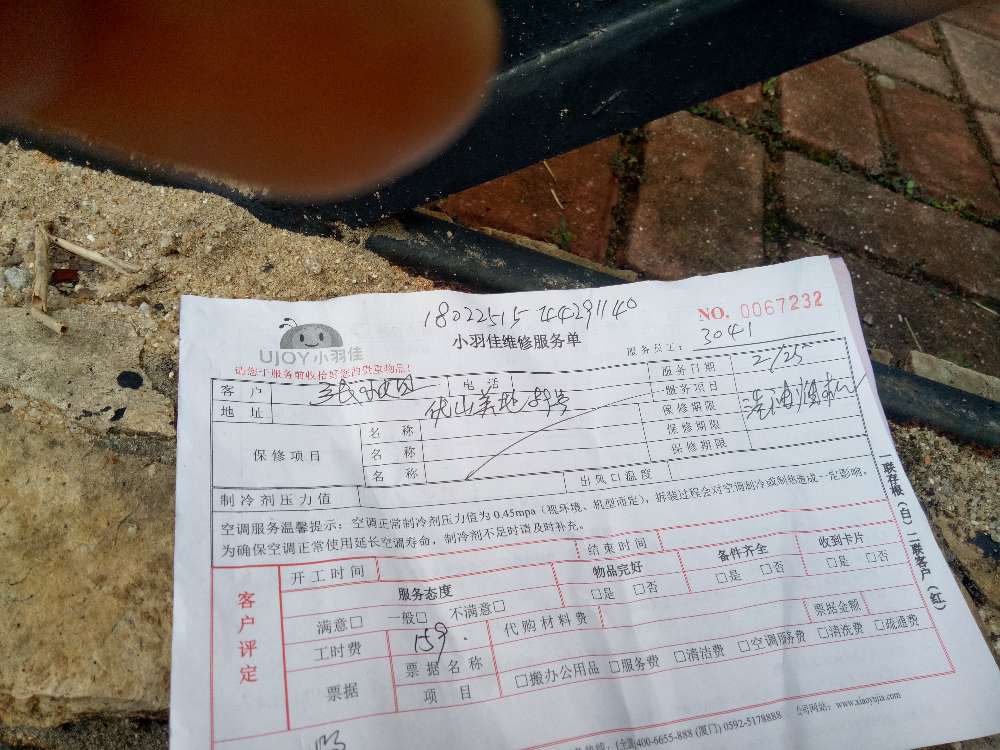 NO. 0067232
UJOY小羽佳
小羽佳维修服务单
服务员工: 3041
请您于服务前收拾好您的贵重物品!
客 户 电 话 服务日期 2/25
地 址 服务项目
保修项目 名 称 保修期限
名 称 保修期限
名 称 保修期限
制冷剂压力值 出风口温度
空调服务温馨提示: 空调正常制冷剂压力值为 0.45mpa (视环境、机型而定), 拆装过程会对空调制冷或制热造成一定影响。
为确保空调正常使用延长空调寿命, 制冷剂不足时请及时补充。
一联存根(白) 二联客户(红)
客户评定
开工时间 结束时间
服务态度 物品完好 备件齐全 收到卡片
满意□ 一般□ 不满意□ □是 □否 □是 □否 □是 □否
工时费 159. 代购材料费 票据金额
票据 票据名称 □搬办公用品 □服务费 □清洁费 □空调服务费 □清洗费 □疏通费
项 目
400-6655-888 (厦门) 0592-5178888 公司网站: www.xiaoyujia.com